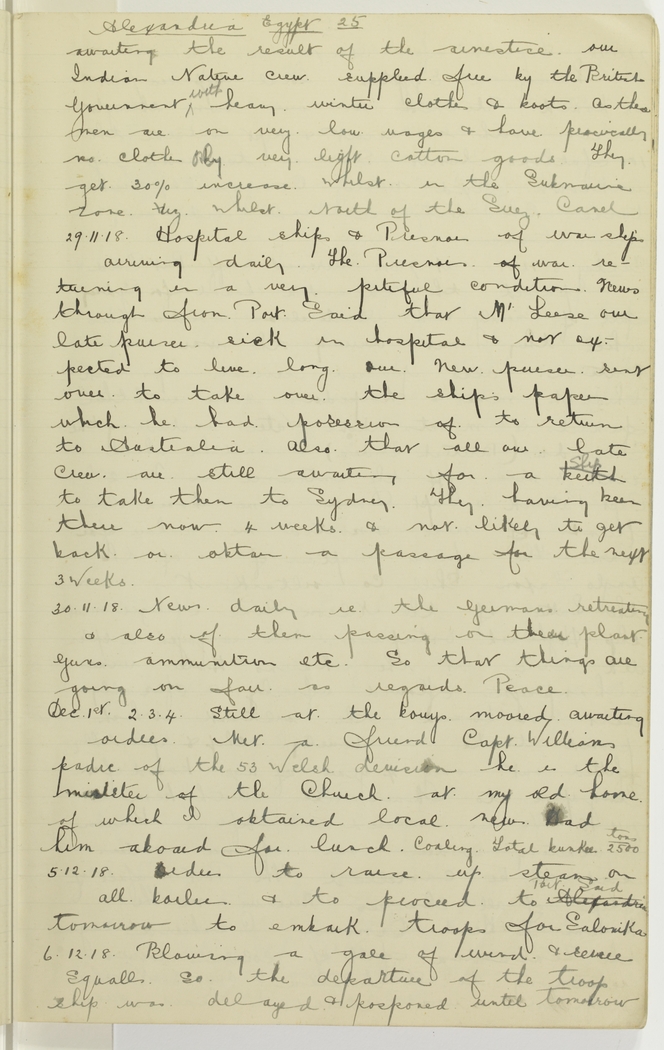 Alexandria Egypt 25
awaiting the result of the armestice. our
Indian Native crew. supplied free by the British
Government with heavy. winter clothes & boots. As these
men are on very. low wages & have practically
no. clothes only very light cotton goods. They.
get 30% increase. whilst. in the Submarine
zone. viz. whilst. North of the Suez. Canal
29.11.18. Hospital ships & Prisnors of war ships
arriving daily. The. Prisnors. of war. re-
turning in a very. pitiful condition. News
through from. Port. Said that Mr Leese our
late purser. sick in hospital & not ex-
pected to live. long. our. New. purser. sent
over. to take over. the ships paper
which he. had. posession of. to return
to Australia. Also. that all our. late
Crew. are. still awaiting for. a ship
to take them to Sydney. They. having been
there now. 4 weeks. & not. likely to get
back. or. obtain a passage for the next
3 Weeks.
30.11.18. News. daily re. the Germans retreating
& also of them passing on their plant.
Guns. ammunition etc. So that things are
going on fair. as regards. Peace.
Dec. 1st. 2.3.4. Still at. the bouys. moored. awaiting
orders. Met. a. friend Capt. Williams
padre of the 53 Welsh devision he is the
minister of the Church. at. my old home.
of which I obtained local. news. Had
him aboard for. lunch. Coaling. Total bunker 2500 tons
5.12.18. orders to raise. up steam on
all. boilers & to proceed. to Alexandria Port. Said
tomorrow to embark. troops for Salonika
6.12.18. Blowing a gale of wind. &
Squalls. So. the departure of the troop
ship was. delayed & posponed until tomorrow